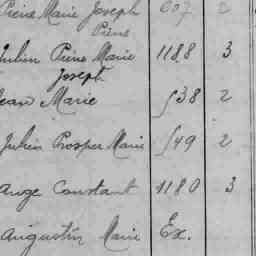 Pierre Marie Joseph 607 2
Pierre
Julien Pierre Marie 1188 3
Joseph
Jean Marie 538 2
Julien Prosper Marie 549 2
Ange Constant 1180 3
Augustin Marie Ex.